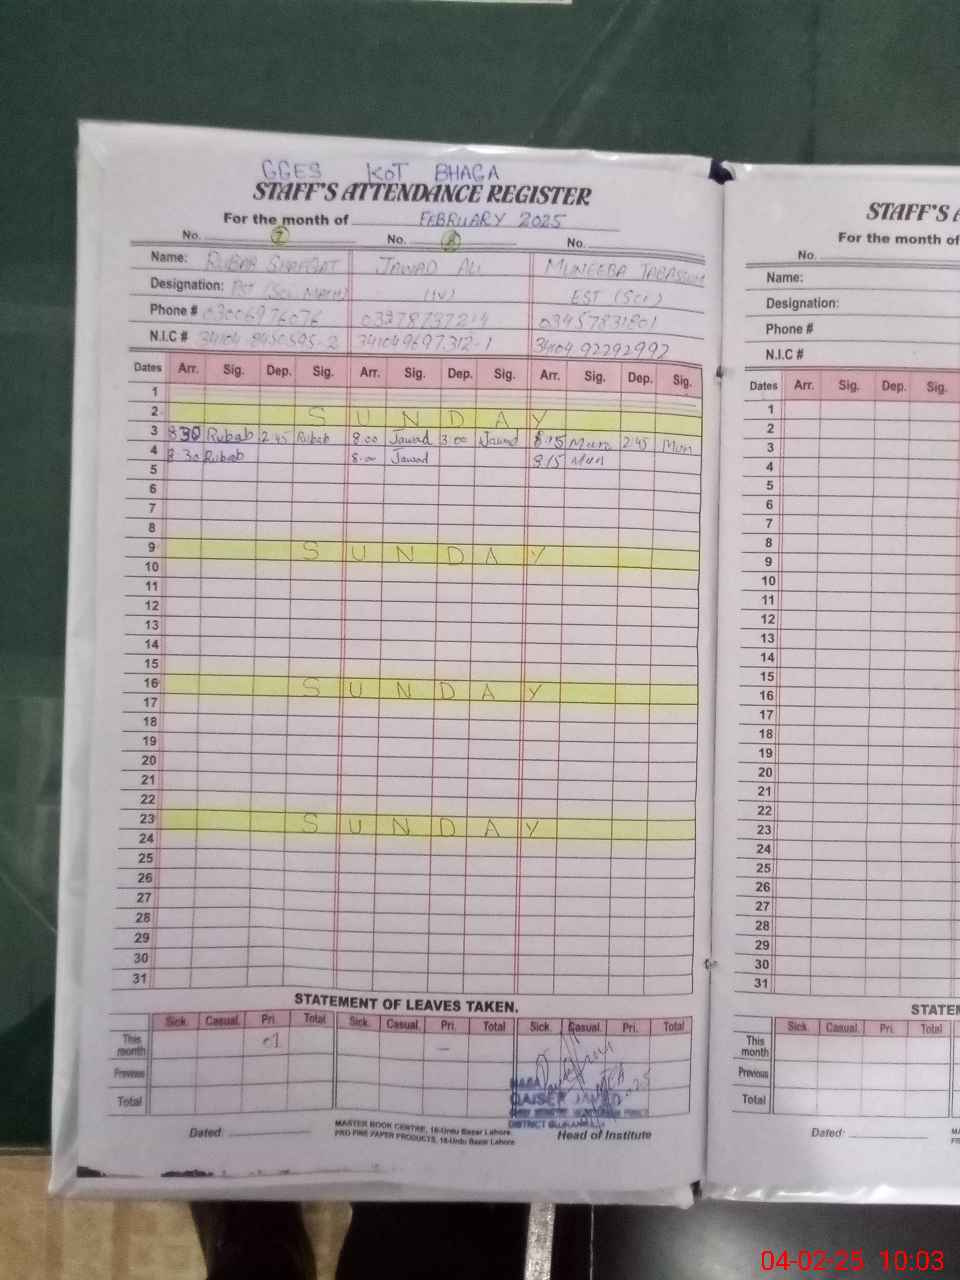 GGES KOT BHAGA
STAFF'S ATTENDANCE REGISTER
For the month of FEBRUARY 2025
No. 7 No. 8 No.
Name: RUBAB SHAFQAT JAWAD ALI MUNEEBA TABASSUM
Designation: (IV) EST (Sci)
Phone # 03006976076 03457831801
N.I.C # 34104 92292992
Dates Arr. Sig. Dep. Sig. Arr. Sig. Dep. Sig. Arr. Sig. Dep. Sig.
1
2 SUNDAY
3 8 30 Rubab 2 45 Rubab 8.00 Jawad 3.00 Jawad 8.15 Mun 2:45 Mun
4 8 30 Rubab 8.00 Jawad 8.15 Mun
5
6
7
8
9 SUNDAY
10
11
12
13
14
15
16 SUNDAY
17
18
19
20
21
22
23 SUNDAY
24
25
26
27
28
29
30
31
STATEMENT OF LEAVES TAKEN.
Sick. Casual. Pri. Total Sick. Casual. Pri. Total Sick. Casual. Pri. Total
This month
Previous
Total
Dated:
MASTER BOOK CENTRE, 16-Urdu Bazar Lahore.
PRO FINE PAPER PRODUCTS, 16-Urdu Bazar Lahore
Head of Institute
STAFF'S A
For the month of
No.
Name:
Designation:
Phone #
N.I.C #
Dates Arr. Sig. Dep. Sig.
1
2
3
4
5
6
7
8
9
10
11
12
13
14
15
16
17
18
19
20
21
22
23
24
25
26
27
28
29
30
31
STATEM
Sick. Casual. Pri. Total
This month
Previous
Total
Dated:
04-02-25 10:03